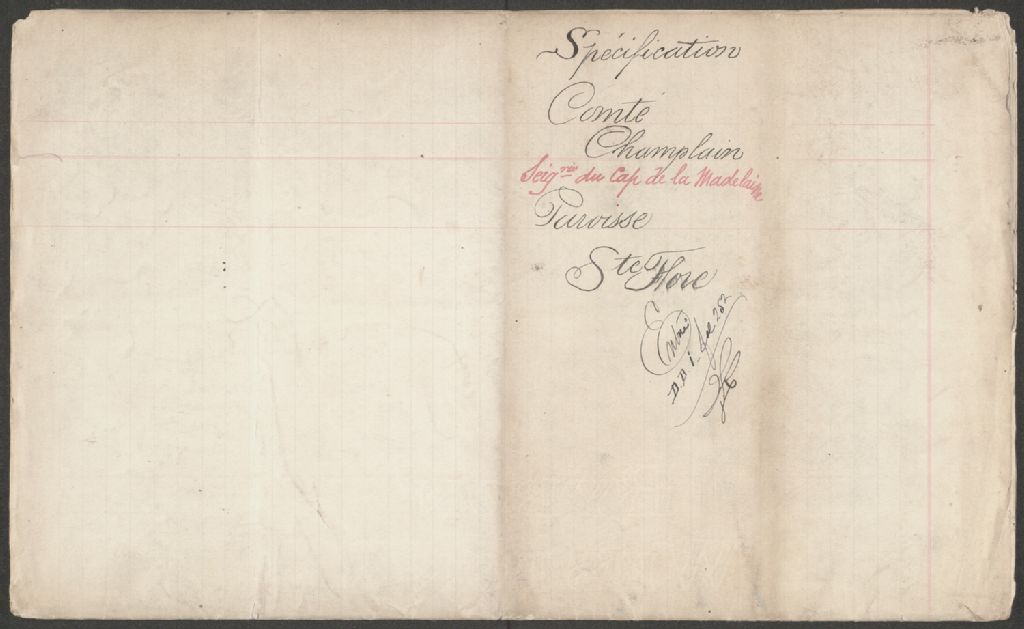 Spécification
Comté
Champlain
Seigrie du Cap de la Madelaine
Paroisse
Ste Flore
Entré
B.B. 1. fol 282